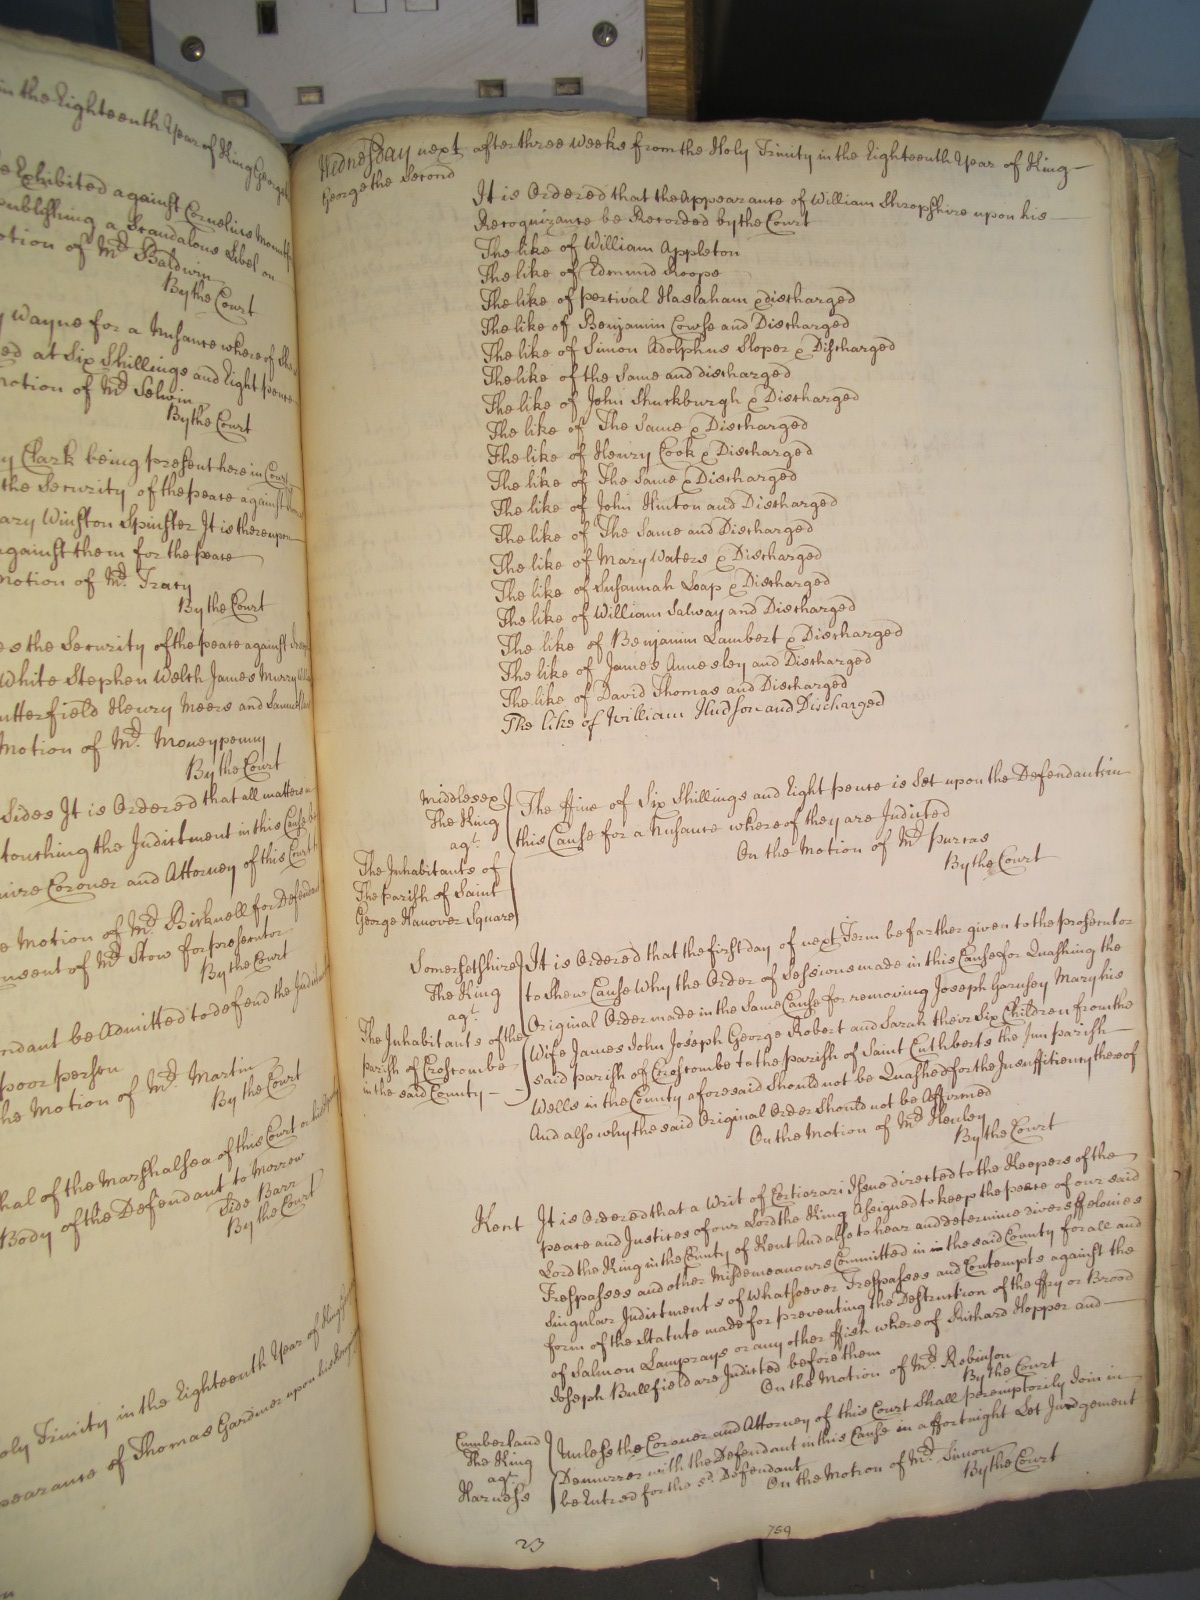 in the Eighteenth Year of King George
be Exhibited against Cornelius
publishing a Scandalous Libel on
otion of Mr. Baldwin
By the Court
y Wayne for a Nusance where of She
ed at Six Shillings and Eight pence
Motion of Mr. Selwin
By the Court
y Clark being present here in Court
the Security of the peace against
ary Winston Spinster It is thereupon
against them for the peace
Motion of Mr. Tracy
By the Court
es the Security of the peace against
White Stephen Welsh James Murry
utterfield Henry Meers and Samuel
Motion of Mr. Moneypenny
By the Court
Sides It is Ordered that all matters
touching the Indictment in this Cause
uire Coroner and Attorney of this Court
e Motion of Mr. Bicknell for Defendant
onsent of Mr. Stow for prosecutor
By the Court
ndant be Admitted to defend the
poor person
he Motion of Mr. Martin
By the Court
hal of the Marshalsea of this Court or his
Body of the Defendant to Morrow
Side Barr
By the Court
oly Trinity in the Eighteenth Year of King
pearance of Thomas Gardiner upon his
Wednesday next after three Weeks from the Holy Trinity in the Eighteenth Year of King
George the Second
It is Ordered that the Appearance of William Shropshire upon his
Recognizance be Recorded by the Court
The like of William Appleton
The like of Edmund Roope
The like of percival Haslaham & discharged
The like of Benjamin Cowse and Discharged
The like of Simon Adolphus Sloper & Discharged
The like of the Same and discharged
The like of John Shuckburgh & Discharged
The like of The Same & Discharged
The like of Henry Cook & Discharged
The like of The Same & Discharged
The like of John Hinton and Discharged
The like of The Same and Discharged
The like of Mary Waters & Discharged
The like of Susannah Soap & Discharged
The like of William Salway and Discharged
The like of Benjamin Lambert & Discharged
The like of James Annesley and Discharged
The like of David Thomas and Discharged
The like of William Hudson and Discharged
Middlesex
The King
agt.
The Inhabitants of
The parish of Saint
George Hanover Square
The ffine of Six Shillings and Eight pence is Set upon the Defendants in
this Cause for a Nusance whereof they are Indicted
On the Motion of Mr. purcas
By the Court
Somersetshire
The King
agt.
The Inhabitants of the
parish of Croscombe
in the said County
It is Ordered that the first day of next Term be farther given to the prosecutor
to Shew Cause Why the Order of Sessions made in this Cause for Quashing the
Original Order made in the Same Cause for removing Joseph Garnsey Mary his
Wife James John Joseph George Robert and Sarah their Six Children from the
said parish of Croscombe to the parish of Saint Cuthberts the Inn parish
Wells in the County aforesaid should not be Quashed for the Insufficiency thereof
And also why the said Original Order Should not be Affirmed
On the Motion of Mr. Henley
By the Court
Kent
It is Ordered that a Writ of Certiorari Issue directed to the Keepers of the
peace and Justices of our Lord the King Assigned to keep the peace of our said
Lord the King in the County of Kent And also to hear and determine divers ffelonies
Trespasses and other Misdemeanours Committed in in the said County for all and
Singular Indictments of Whatsoever Trespasses and Contempts against the
form of the Statute made for preventing the Destruction of the ffry or Brood
of Salmon Lamprays or any other ffish whereof Richard Hopper and
Joseph Bullfield are Indicted before them
On the Motion of Mr. Robinson
By the Court
Cumberland
The King
agt.
Harness
Unless the Coroner and Attorney of this Court Shall peremptorily Join in
Demurrer with the Defendant in this Cause in a ffortnight Let Judgement
be Entred for the sd. Defendant
On the Motion of Mr. Simon
By the Court
23
759